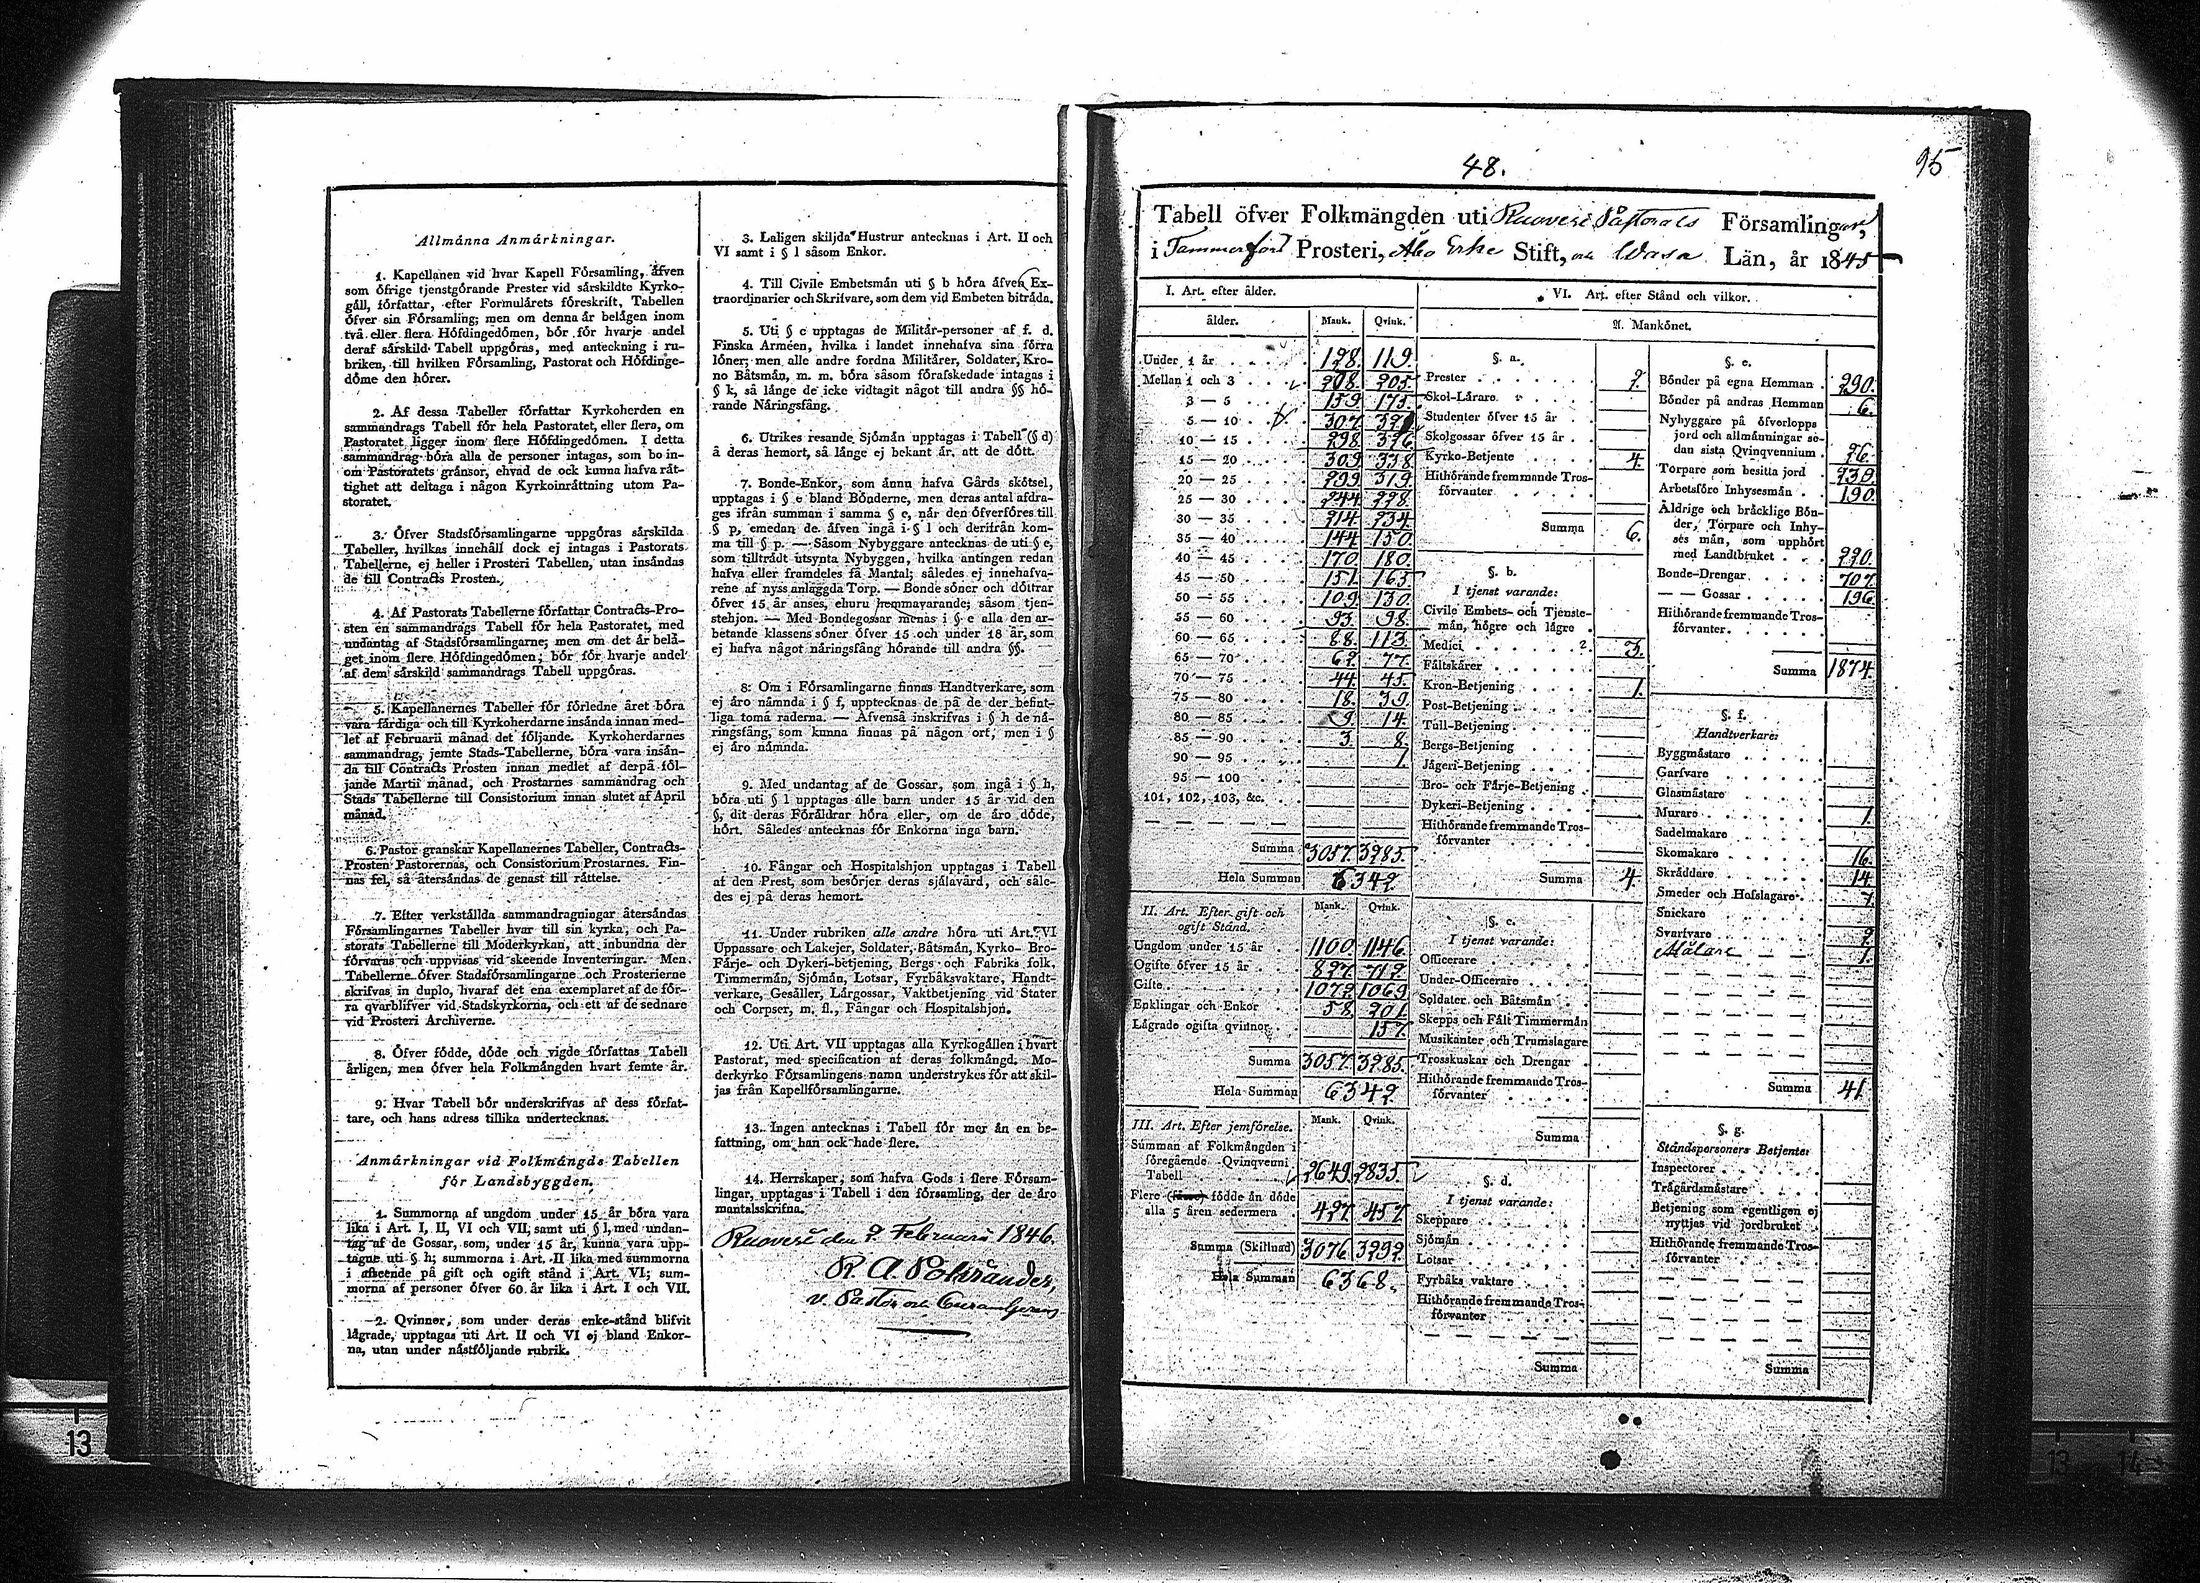 Allmånna Anmårkningar.
1. Kapellanen vid hvar Kapell Fórsamling, åfven
som ófrige tjenstgórande Prester vid sårskildte Kyrko-
gåll, fórfattar, efter Formulårets fóreskrift, Tabellen
ófver sin Fórsamling; men om denna år belågen inom
två eller flera Hófdingedómen, bór fór hvarje andel
deraf sårskild Tabell uppgóras, med anteckning i ru-
briken, till hvilken Fórsamling, Pastorat och Hófdinge-
dóme den hórer.
2. Af dessa Tabeller fórfattar Kyrkoherden en
sammandrags Tabell fór hela Pastoratet, eller flera, om
Pastoratet ligger inom flere Hófdingedómen. I detta
sammandrag bóra alla de personer intagas, som bo in-
om Pastoratets grånsor, ehvad de ock kunna hafva råt-
tighet att deltaga i någon Kyrkoinråttning utom Pa-
storatet.
3. Ófver Stadsfórsamlingarne uppgóras sårskilda
Tabeller, hvilkas innehåll dock ej intages i Pastorats
Tabellerne, ej heller i Prosteri Tabellen, utan insåndas
de till Contracts Prosten.
4. Af Pastorats Tabellerne fórfattar Contracts-Pro-
sten en sammandrags Tabell fór hela Pastoratet, med
undantag af Stadsfórsamlingarne; men om det år belå-
get inom flere Hófdingedómen, bór fór hvarje andel
af dem sårskild sammandrags Tabell uppgóras.
5. Kapellanernes Tabeller fór fórledne året bóra
vara fårdiga och till Kyrkoherdarne insånda innan med-
let af Februarii månad det fóljande. Kyrkoherdarnes
sammandrag, jemte Stads-Tabellerne, bóra vara insån-
da till Contracts Prosten innan medlet af derpå fól-
jande Martii månad, och Prostarnes sammandrag och
Stads Tabellerne till Consistorium innan slutet af April
månad.
6. Pastor granskar Kapellanernes Tabeller, Contracts-
Prosten Pastorernas, och Consistorium Prostarnes. Fin-
nas fel, så återsåndas de genast till råttelse.
7. Efter verkstållda sammandragningar återsåndas
Fórsamlingarnes Tabeller hvar till sin kyrka, och Pa-
storats Tabellerne till Moderkyrkan, att inbundna der
fórvaras och uppvisas vid skeende Inventeringar. Men
Tabellerne ófver Stadsfórsamlingarne och Prosterierne
skrifvas in duplo, hvaraf det ena exemplaret af de fór-
ra qvarblifver vid Stadskyrkorna, och ett af de sednare
vid Prosteri Archiverne.
8. Ófver fódde, dóde och vigde fórfattas Tabell
årligen, men ófver hela Folkmångden hvart femte år.
9. Hvar Tabell bór underskrifvas af dess fórfat-
tare, och hans adress tillika undertecknas.
Anmårkningar vid Folkmångds Tabellen
fór Landsbyggden.
1. Summorna af ungdom under 15 år bóra vara
lika i Art. I, II, VI och VII, samt uti § l, med undan-
tag af de Gossar, som, under 15 år, kunna vara upp-
tagne uti § h; summorna i Art. II lika med summorna
i afseende på gift och ogift stånd i Art. VI; sum-
morna af personer ófver 60 år lika i Art. I och VII.
2. Qvinnor, som under deras enke-stånd blifvit
lågrade, upptagas uti Art. II och VI ej bland Enkor-
na, utan under nåstfóljande rubrik.
3. Laligen skiljda Hustrur antecknas i Art. II och
VI samt i § l såsom Enkor.
4. Till Civile Embetsmån uti § b hóra åfven Ex-
traordinarier och Skrifvare, som dem vid Embeten bitråda.
5. Uti § c upptagas de Militår-personer af f. d.
Finska Arméen, hvilka i landet innehafva sina fórra
lóner; men alle andre fordna Militårer, Soldater, Kro-
no Båtsmån, m. m. bóra såsom fórafskedade intagas i
§ k, så långe de icke vidtagit något till andra §§ hó-
rande Nåringsfång.
6. Utrikes resande Sjómån upptagas i Tabell (§ d)
å deras hemort, så långe ej bekant år, att de dótt.
7. Bonde-Enkor, som ånnu hafva Gårds skótsel,
upptagas i § e bland Bónderne, men deras antal afdra-
ges ifrån summan i samma § e, når den ófverfóres till
§ p, emedan de åfven ingå i § l och derifrån kom-
ma till § p. — Såsom Nybyggare antecknas de uti § e,
som tilltrådt utsynta Nybyggen, hvilka antingen redan
hafva eller framdeles få Mantal; således ej innehafva-
rene af nyss anlaggda Torp. — Bonde sóner och dóttrar
ófver 15 år anses, ehuru hemmavarande, såsom tjen-
stehjon. — Med Bondegossar menas i § e alla den ar-
betande klassens sóner ófver 15 och under 18 år, som
ej hafva något nåringsfång hórande till andra §§.
8. Om i Fórsamlingarne finnas Handtverkare, som
ej åro nåmnda i § f, upptecknas de på de der befint-
liga toma raderna. — Åfvenså inskrifvas i § h de nå-
ringsfång, som kunna finnas på någon ort, men i §
ej åro nåmnda.
9. Med undantag af de Gossar, som ingå i § h,
bóra uti § l upptagas alle barn under 15 år vid den
§, dit deras Fóråldrar hóra eller, om de åro dóde,
hórt. Således antecknas fór Enkorna inga barn.
10. Fångar och Hospitalshjon upptagas i Tabell
af den Prest, som besórjer deras sjålavård, och såle-
des ej på deras hemort.
11. Under rubriken alle andre hóra uti Art. VI
Uppassare och Lakejer, Soldater, Båtsmån, Kyrko- Bro-
Fårje- och Dykeri-betjening, Bergs- och Fabriks folk,
Timmermån, Sjómån, Lotsar, Fyrbåksvaktare, Handt-
verkare, Gesåller, Lårgossar, Vaktbetjening vid Stater
och Corpser, m. fl., Fångar och Hospitalshjon.
12. Uti Art. VII upptagas alla Kyrkogållen i hvart
Pastorat, med specification af deras folkmångd. Mo-
derkyrko Fórsamlingens namn understrykes fór att skil-
jas från Kapellfórsamlingarne.
13. Ingen antecknas i Tabell fór mer ån en be-
fattning, om han ock hade flere.
14. Herrskaper, som hafva Gods i flere Fórsam-
lingar, upptagas i Tabell i den fórsamling, der de åro
mantalsskrifna.
Ruovesi den 2 Februarii 1846.
v. Pastor och
48.
95
Tabell öfver Folkmängden uti Ruovesi Pastorats Församlingar,
i Tammerfors Prosteri, Åbo Erke Stift, och Wasa Län, år 1845
I. Art. efter ålder.
VI. Art. efter Stånd och vilkor.
ålder. Mank. Qvink.
A. Mankónet.
Under 1 år 128. 119.
Mellan 1 och 3 208. 205.
3 — 5 159 175.
5 — 10 307
10 — 15 298. 326.
15 — 20 309 338.
20 — 25 299 319.
25 — 30 244. 228.
30 — 35 214. 234.
35 — 40 144. 150.
40 — 45 170. 180.
45 — 50 151. 165.
50 — 55 109. 130.
55 — 60 93. 98.
60 — 65 88. 113.
65 — 70 62. 77.
70 — 75 44. 45.
75 — 80 18. 39.
80 — 85 9. 14.
85 — 90 3. 8.
90 — 95 1.
95 — 100
101, 102, 103, &c.
Summa 3057. 3285.
Hela Summan 6342.
II. Art. Efter gift och
ogift Stånd.
Mank. Qvink.
Ungdom under 15 år 1100. 1146.
Ogifte ófver 15 år 827. 712.
Gifte 1072. 1069.
Enklingar och Enkor 58. 201.
Lågrade ogifta qvinnor 157.
Summa 3057. 3285.
Hela Summan 6342.
III. Art. Efter jemfórelse.
Mank. Qvink.
Summan af Folkmångden i
fóregående Qvinqvenni
Tabell 2649. 2835.
Flere (fårre) fódde ån dóde
alla 5 åren sedermera 427. 457.
Summa (Skillnad) 3076. 3292.
Hela Summan 6368.
§. a.
Prester 2.
Skol-Lårare
Studenter ófver 15 år
Skolgossar ófver 15 år
Kyrko-Betjente 4.
Hithórande fremmande Tros-
fórvanter
Summa 6.
§. b.
I tjenst varande:
Civile Embets- och Tjenste-
mån, hógre och lågre 3.
Medici
Fåltskårer
Kron-Betjening 1.
Post-Betjening
Tull-Betjening
Bergs-Betjening
Jågeri-Betjening
Bro- och Fårje-Betjening
Dykeri-Betjening
Hithórande fremmande Tros-
fórvanter
Summa 4.
§. c.
I tjenst varande:
Officerare
Under-Officerare
Soldater och Båtsmån
Skepps och Fålt Timmermån
Musikanter och Trumslagare
Trosskuskar och Drengar
Hithórande fremmande Tros-
fórvanter
Summa
§. d.
I tjenst varande:
Skeppare
Sjómån
Lotsar
Fyrbåks vaktare
Hithórande fremmande Tros-
fórvanter
Summa
§. e.
Bónder på egna Hemman 290.
Bónder på andras Hemman 6.
Nybyggare på ófverlopps
jord och allmånningar se-
dan sista Qvinqvennium 26.
Torpare som besitta jord 239.
Arbetsfóre Inhysesmån 190.
Åldrige och bråcklige Bón-
der, Torpare och Inhy-
ses mån, som upphórt
med Landtbruket 220.
Bonde-Drengar 707.
— — Gossar 196.
Hithórande fremmande Tros-
fórvanter
Summa 1874.
§. f.
Handtverkare:
Byggmåstare
Garfvare
Glasmåstare
Murare 1.
Sadelmakare
Skomakare 16.
Skråddare 14.
Smeder och Hofslagare 7.
Snickare
Svarfvare 2.
Målare 1.
Summa 41.
§. g.
Ståndspersoners Betjente:
Inspectorer
Trågårdsmåstare
Betjening som egentligen ej
nyttjas vid jordbruket
Hithórande fremmande Tros-
fórvanter
Summa
13
13
14